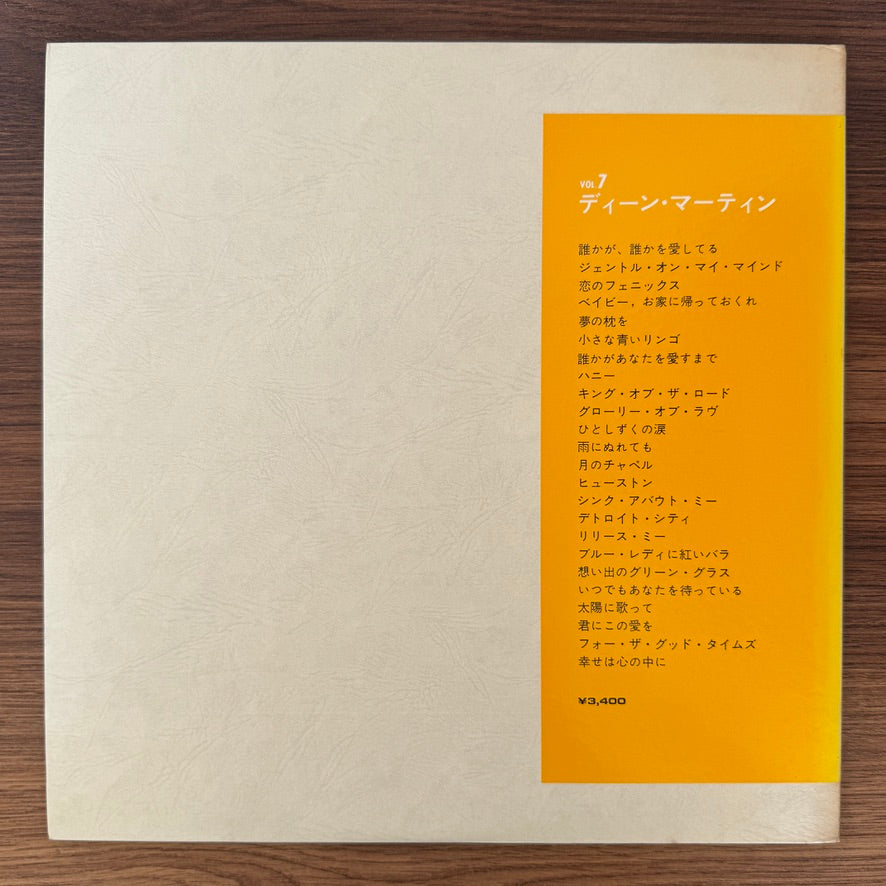 VOL.7
ディーン・マーティン
誰かが、誰かを愛してる
ジェントル・オン・マイ・マインド
恋のフェニックス
ベイビー，お家に帰っておくれ
夢の枕を
小さな青いリンゴ
誰かがあなたを愛すまで
ハニー
キング・オブ・ザ・ロード
グローリー・オブ・ラヴ
ひとしずくの涙
雨にぬれても
月のチャペル
ヒューストン
シンク・アバウト・ミー
デトロイト・シティ
リリース・ミー
ブルー・レディに紅いバラ
想い出のグリーン・グラス
いつでもあなたを待っている
太陽に歌って
君にこの愛を
フォー・ザ・グッド・タイムズ
幸せは心の中に
¥3,400